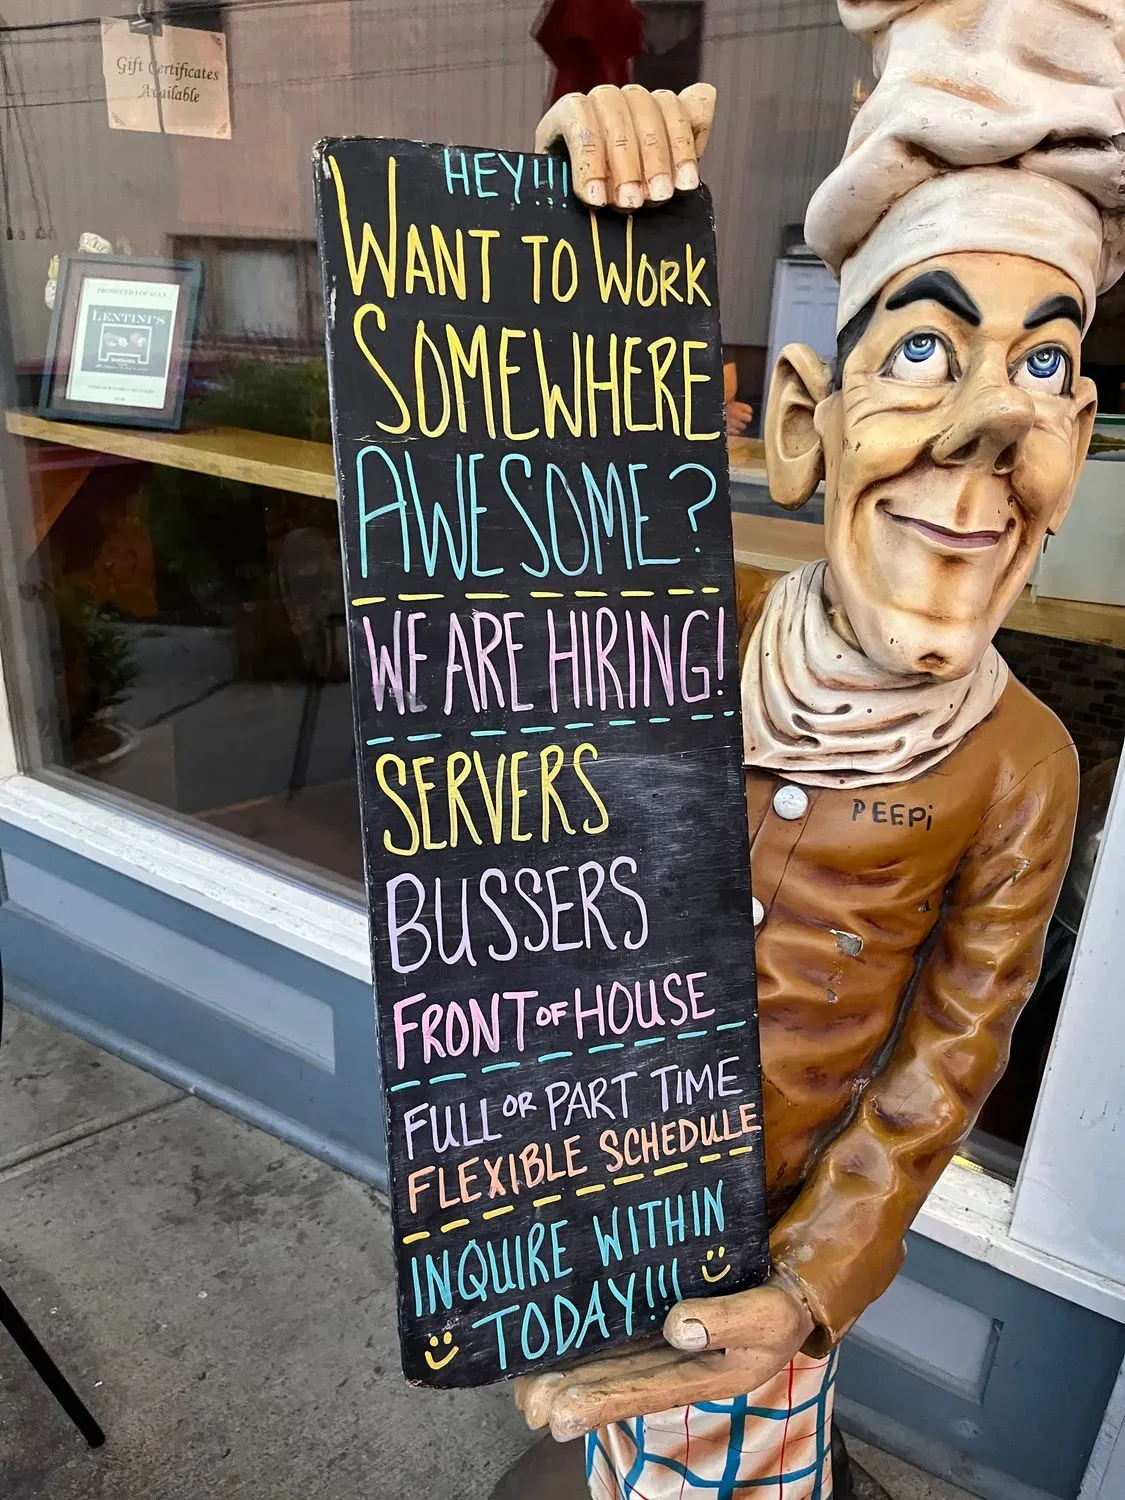 Gift Certificates
Available
PRODUCED LOCALLY
LENTINI'S
HEY!!!
WANT TO WORK
SOMEWHERE
AWESOME?
WE ARE HIRING!
SERVERS
BUSSERS
FRONT OF HOUSE
FULL OR PART TIME
FLEXIBLE SCHEDULE
INQUIRE WITHIN
TODAY!!!
PEEPi